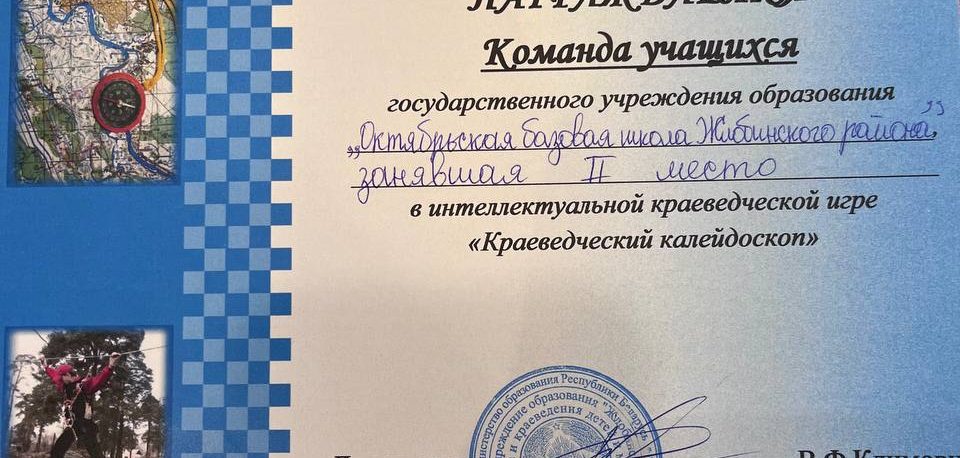 Команда учащихся
государственного учреждения образования
„Октябрьская базовая школа Жлобинского района”,
занявшая II место
в интеллектуальной краеведческой игре
«Краеведческий калейдоскоп»
образования Республики
образования
и краеведения дете